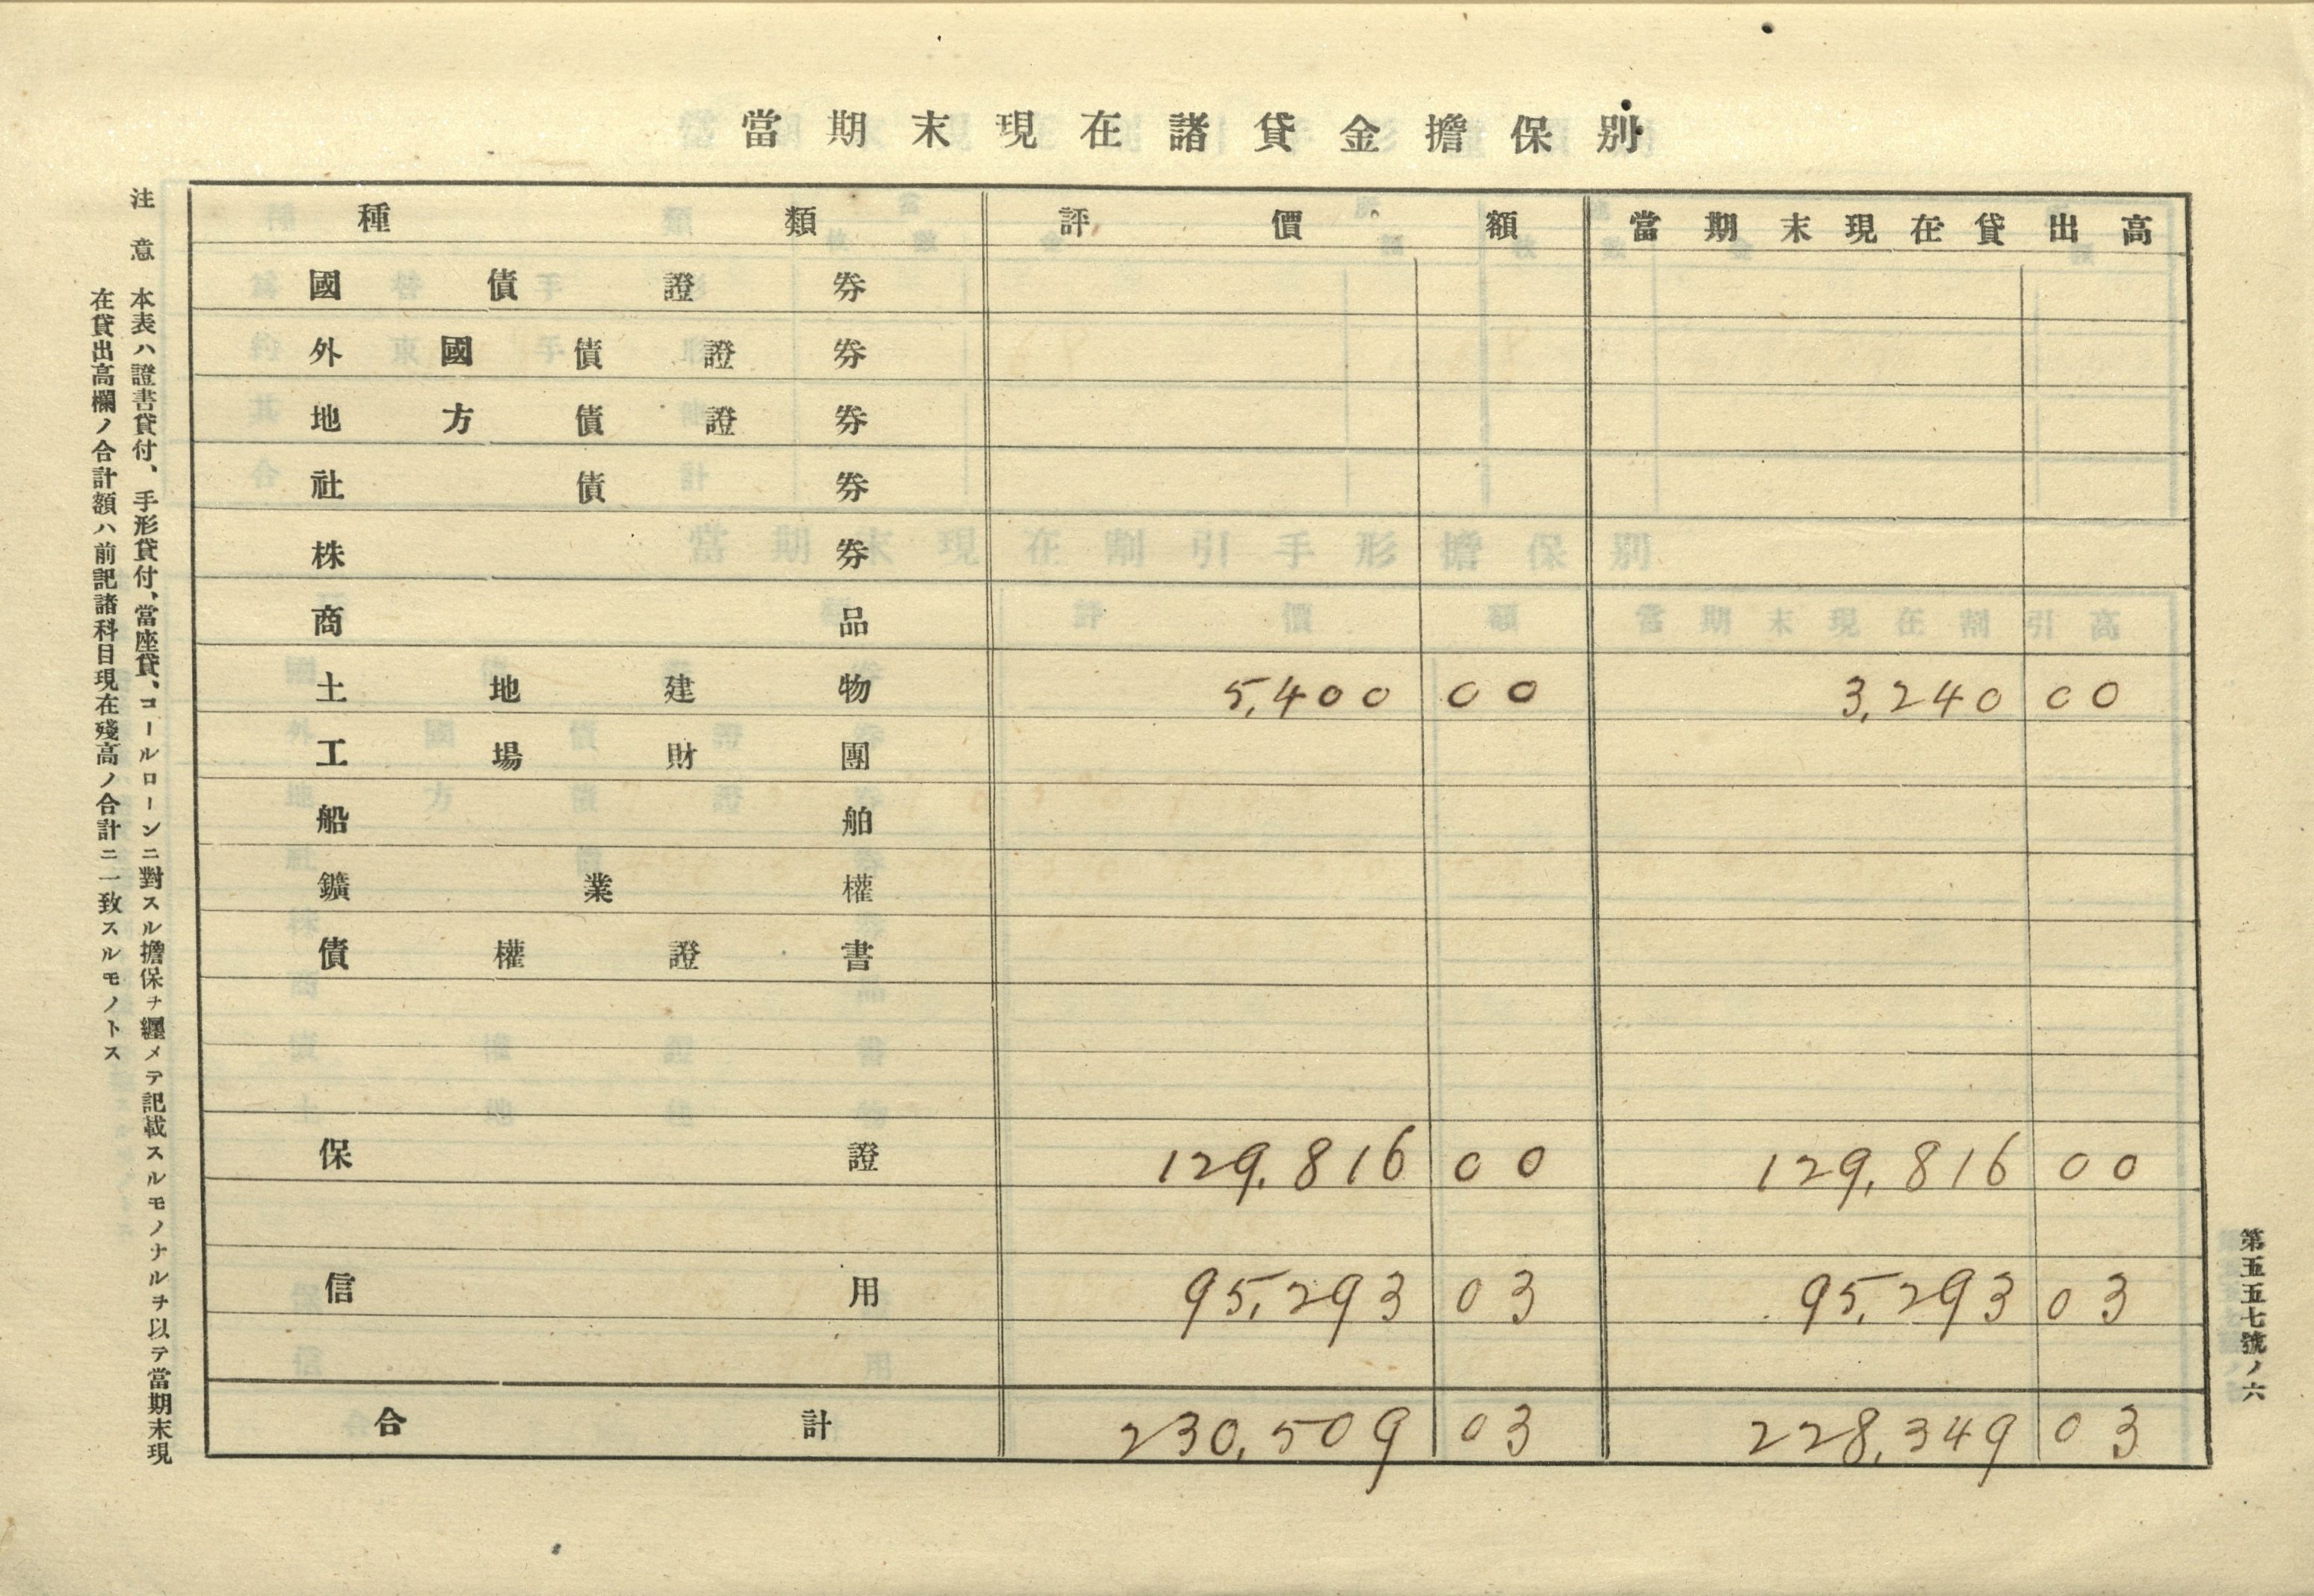 當期末現在諸貸金擔保別
種類 評價額 當期末現在貸出高
國債證券
外國債證券
地方債證券
社債券
株券
商品
土地建物 5,400 00 3,240 00
工場財團
船舶
鑛業權
債權證書
保證 129,816 00 129,816 00
信用 95,293 03 95,293 03
合計 230,509 03 228,349 03
注意 本表ハ證書貸付、手形貸付、當座貸、コールローンニ對スル擔保ヲ纒メテ記載スルモノナルヲ以テ當期末現
在貸出高欄ノ合計額ハ前記諸科目現在殘高ノ合計ニ一致スルモノトス
第五五七號ノ六